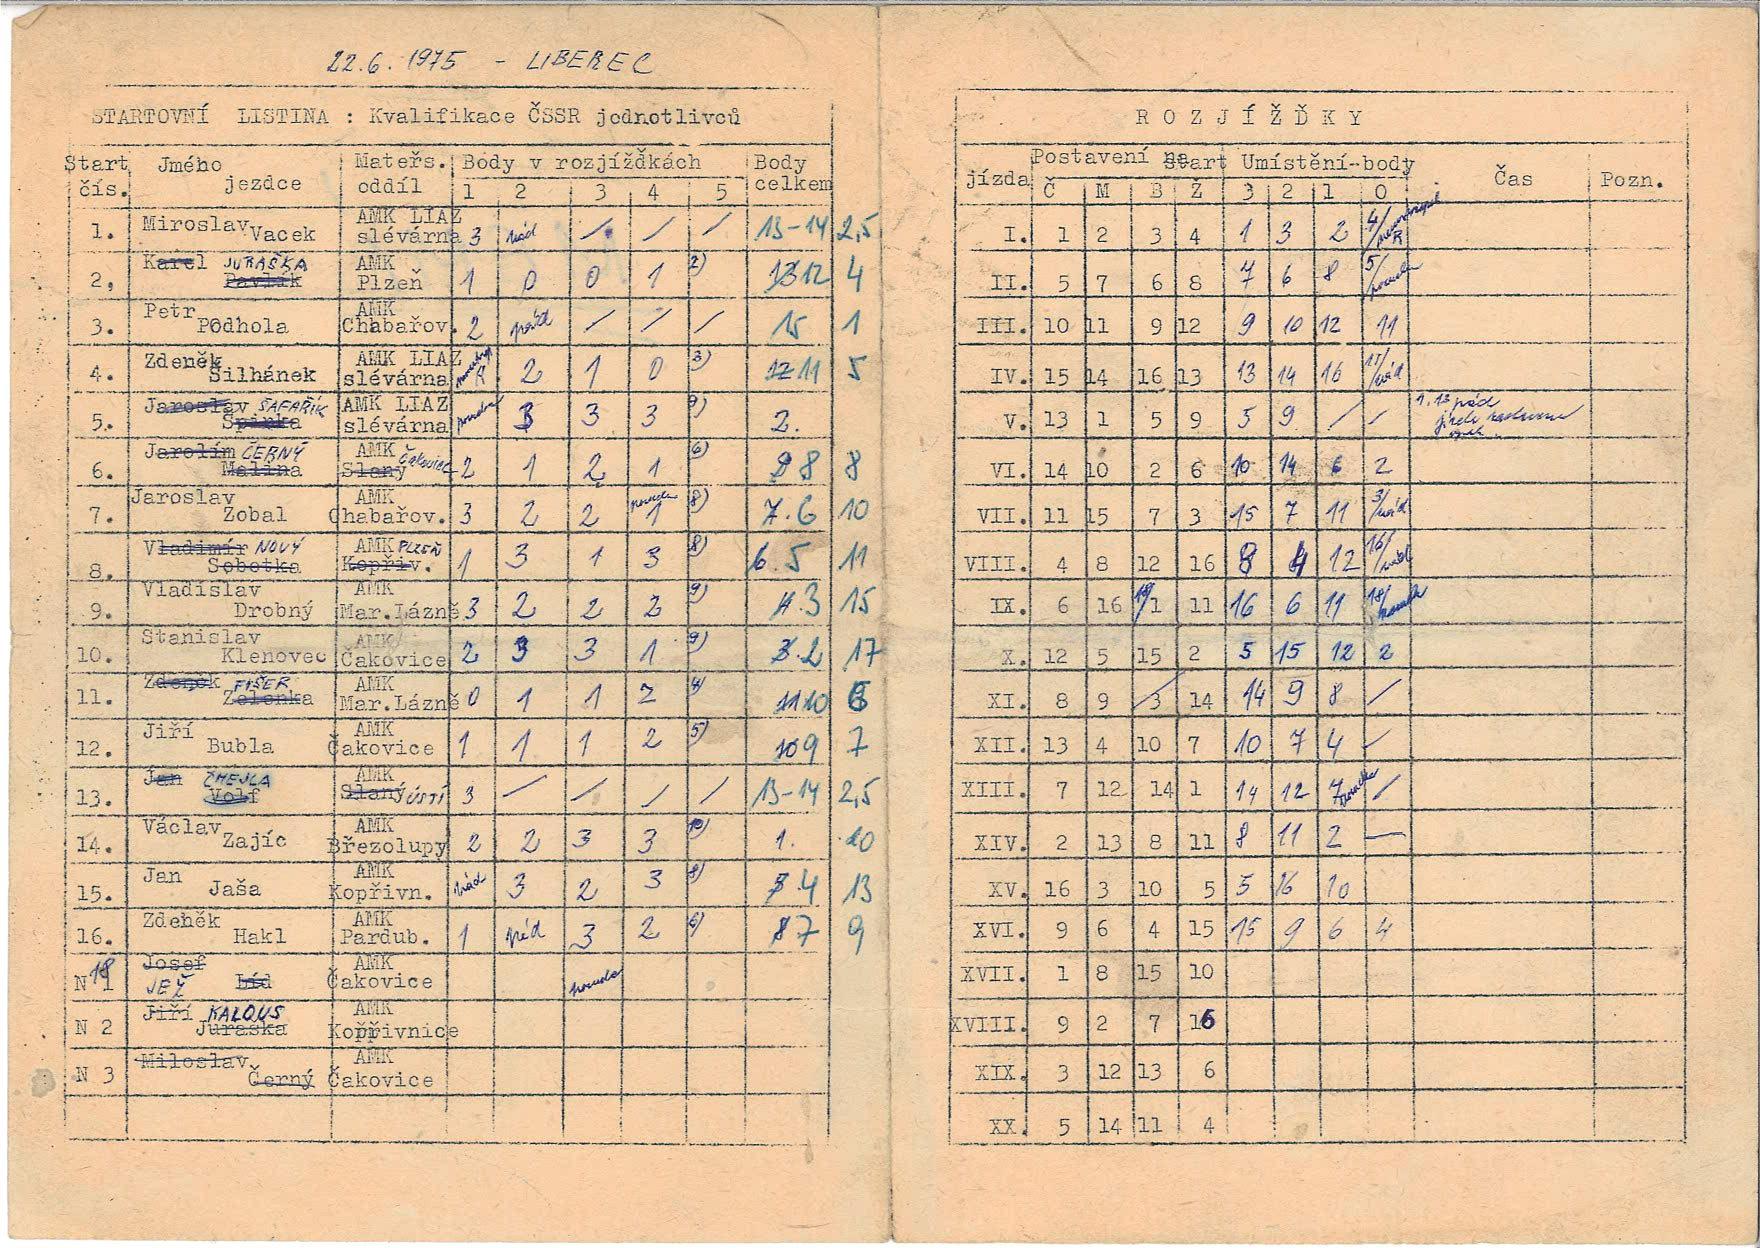 22.6.1975 - LIBEREC
STARTOVNÍ LISTINA : Kvalifikace ČSSR jednotlivců
Start čís. Jméno jezdce Mateřs. oddíl Body v rozjížďkách 1 2 3 4 5 Body celkem
1. Miroslav Vacek AMK LIAZ slévárna 3 / / / 13-14 2,5
2, Karel Pavlík JURAŠKA AMK Plzeň 1 0 0 1 2) 12 4
3. Petr Podhola AMK Chabařov. 2 pád / / / 15 1
4. Zdeněk Šilhánek AMK LIAZ slévárna 2 1 0 3) 12 11 5
5. Jaroslav Špinka ŠAFAŘÍK AMK LIAZ slévárna porucha 3 3 3 9) 2.
6. Jarolím Malina ČERNÝ AMK Slaný Čakovice 2 1 2 1 6) 9 8 8
7. Jaroslav Zobal AMK Chabařov. 3 2 2 porucha 1 8) 7. 6 10
8. Vladimír Sobotka NOVÝ AMK Kopřiv. PLZEŇ 1 3 1 3 8) 6. 5 11
9. Vladislav Drobný AMK Mar.Lázně 3 2 2 2 9) 4. 3 15
10. Stanislav Klenovec AMK Čakovice 2 3 3 1 9) 3. 2 17
11. Zdeněk Zelenka FIŠER AMK Mar.Lázně 0 1 1 2 4) 11 10 6
12. Jiří Bubla AMK Čakovice 1 1 1 2 5) 10 9 7
13. Jan Volf ČMEJLA AMK Slaný ÚSTÍ 3 / / / / 13-14 2,5
14. Václav Zajíc AMK Březolupy 2 2 3 3 10) 1. 20
15. Jan Jaša AMK Kopřivn. 3 2 3 8) 4 13
16. Zdeněk Hakl AMK Pardub. 1 pád 3 2 6) 8 7 9
N 1 18 Josef Líd JEŽ AMK Čakovice porucha
N 2 Jiří Juraška KALOUS AMK Kopřivnice
N 3 Miloslav Černý AMK Čakovice
ROZJÍŽĎKY
jízda Postavení na start Č M B Ž Umístění-body 3 2 1 0 Čas Pozn.
I. 1 2 3 4 1 3 2 4/
II. 5 7 6 8 7 6 8 5/porucha
III. 10 11 9 12 9 10 12 11
IV. 15 14 16 13 13 14 16 15/
V. 13 1 5 9 5 9 / / 1, 13 pád
VI. 14 10 2 6 10 14 6 2
VII. 11 15 7 3 15 7 11 3/pád
VIII. 4 8 12 16 8 4 12 16/pád
IX. 6 16 1 11 16 6 11 18/porucha
X. 12 5 15 2 5 15 12 2
XI. 8 9 3 14 14 9 8 /
XII. 13 4 10 7 10 7 4 /
XIII. 7 12 14 1 14 12 7 porucha /
XIV. 2 13 8 11 8 11 2 —
XV. 16 3 10 5 5 16 10
XVI. 9 6 4 15 15 9 6 4
XVII. 1 8 15 10
XVIII. 9 2 7 16
XIX. 3 12 13 6
XX. 5 14 11 4